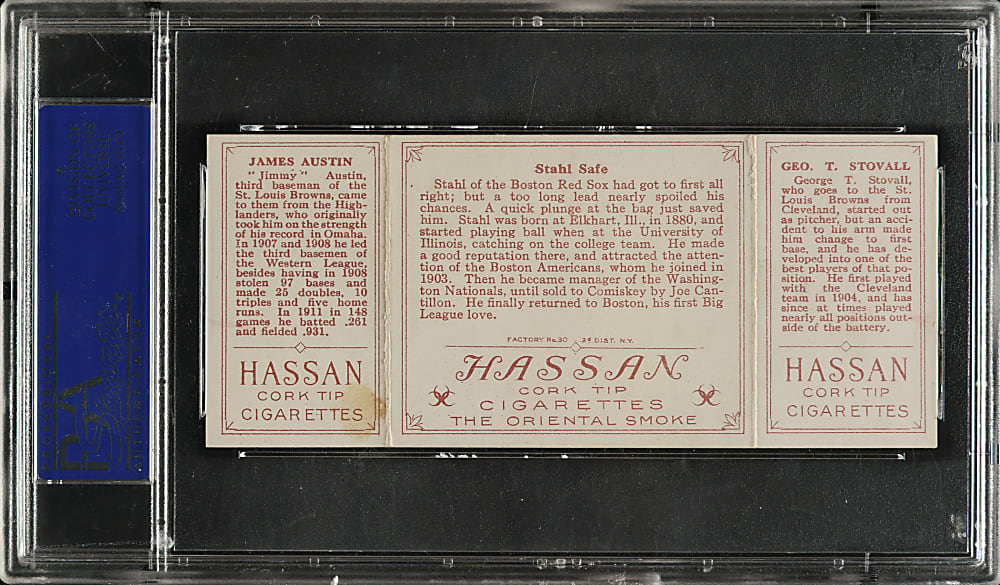 JAMES AUSTIN
"Jimmy" Austin,
third baseman of the
St. Louis Browns, came
to them from the High-
landers, who originally
took him on the strength
of his record in Omaha.
In 1907 and 1908 he led
the third basemen of
the Western League,
besides having in 1908
stolen 97 bases and
made 25 doubles, 10
triples and five home
runs. In 1911 in 148
games he batted .261
and fielded .931.
HASSAN
CORK TIP
CIGARETTES
Stahl Safe
Stahl of the Boston Red Sox had got to first all
right; but a too long lead nearly spoiled his
chances. A quick plunge at the bag just saved
him. Stahl was born at Elkhart, Ill., in 1880, and
started playing ball when at the University of
Illinois, catching on the college team. He made
a good reputation there, and attracted the atten-
tion of the Boston Americans, whom he joined in
1903. Then he became manager of the Washing-
ton Nationals, until sold to Comiskey by Joe Can-
tillon. He finally returned to Boston, his first Big
League love.
FACTORY No. 30 2d DIST. N.Y.
HASSAN
CORK TIP
CIGARETTES
THE ORIENTAL SMOKE
GEO. T. STOVALL
George T. Stovall,
who goes to the St.
Louis Browns from
Cleveland, started out
as pitcher, but an acci-
dent to his arm made
him change to first
base, and he has de-
veloped into one of the
best players of that po-
sition. He first played
with the Cleveland
team in 1904, and has
since at times played
nearly all positions out-
side of the battery.
HASSAN
CORK TIP
CIGARETTES
PSA
A
DIVISION OF
COLLECTORS
UNIVERSE